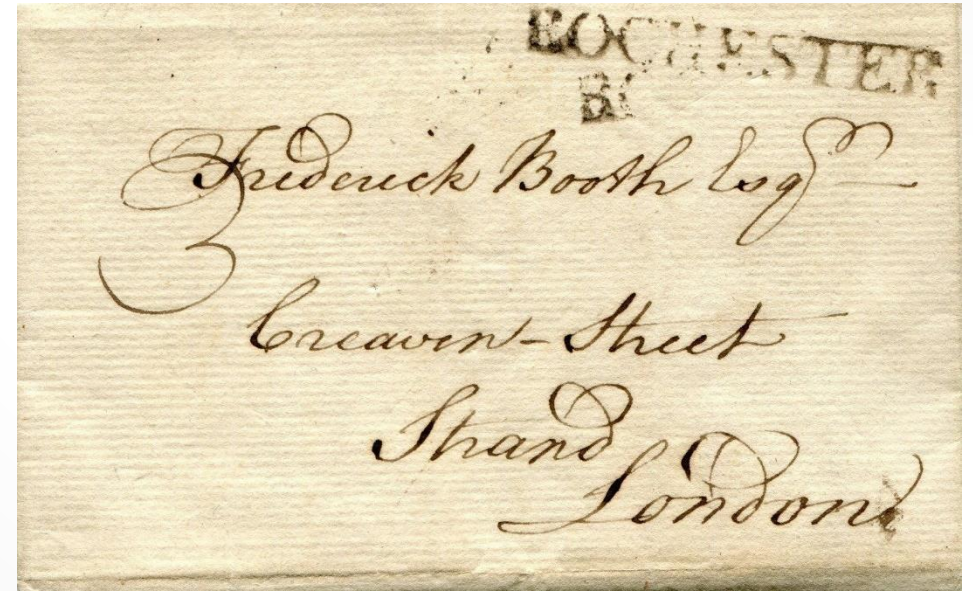 ROCHESTER
Frederick Booth Esqr
3
Creaven-Street
Strand
London